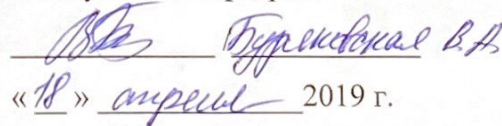 Буряковская В.А.
«18» апреля 2019 г.